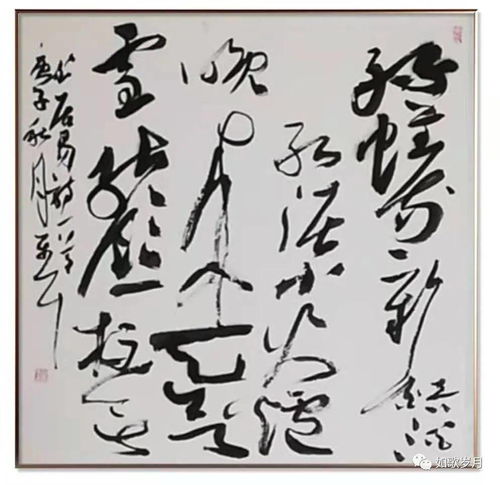 綠蟻新醅酒
紅泥小火爐
晚来天欲
雪能飲一杯無
居易诗一首
庚子秋月
如歌岁月